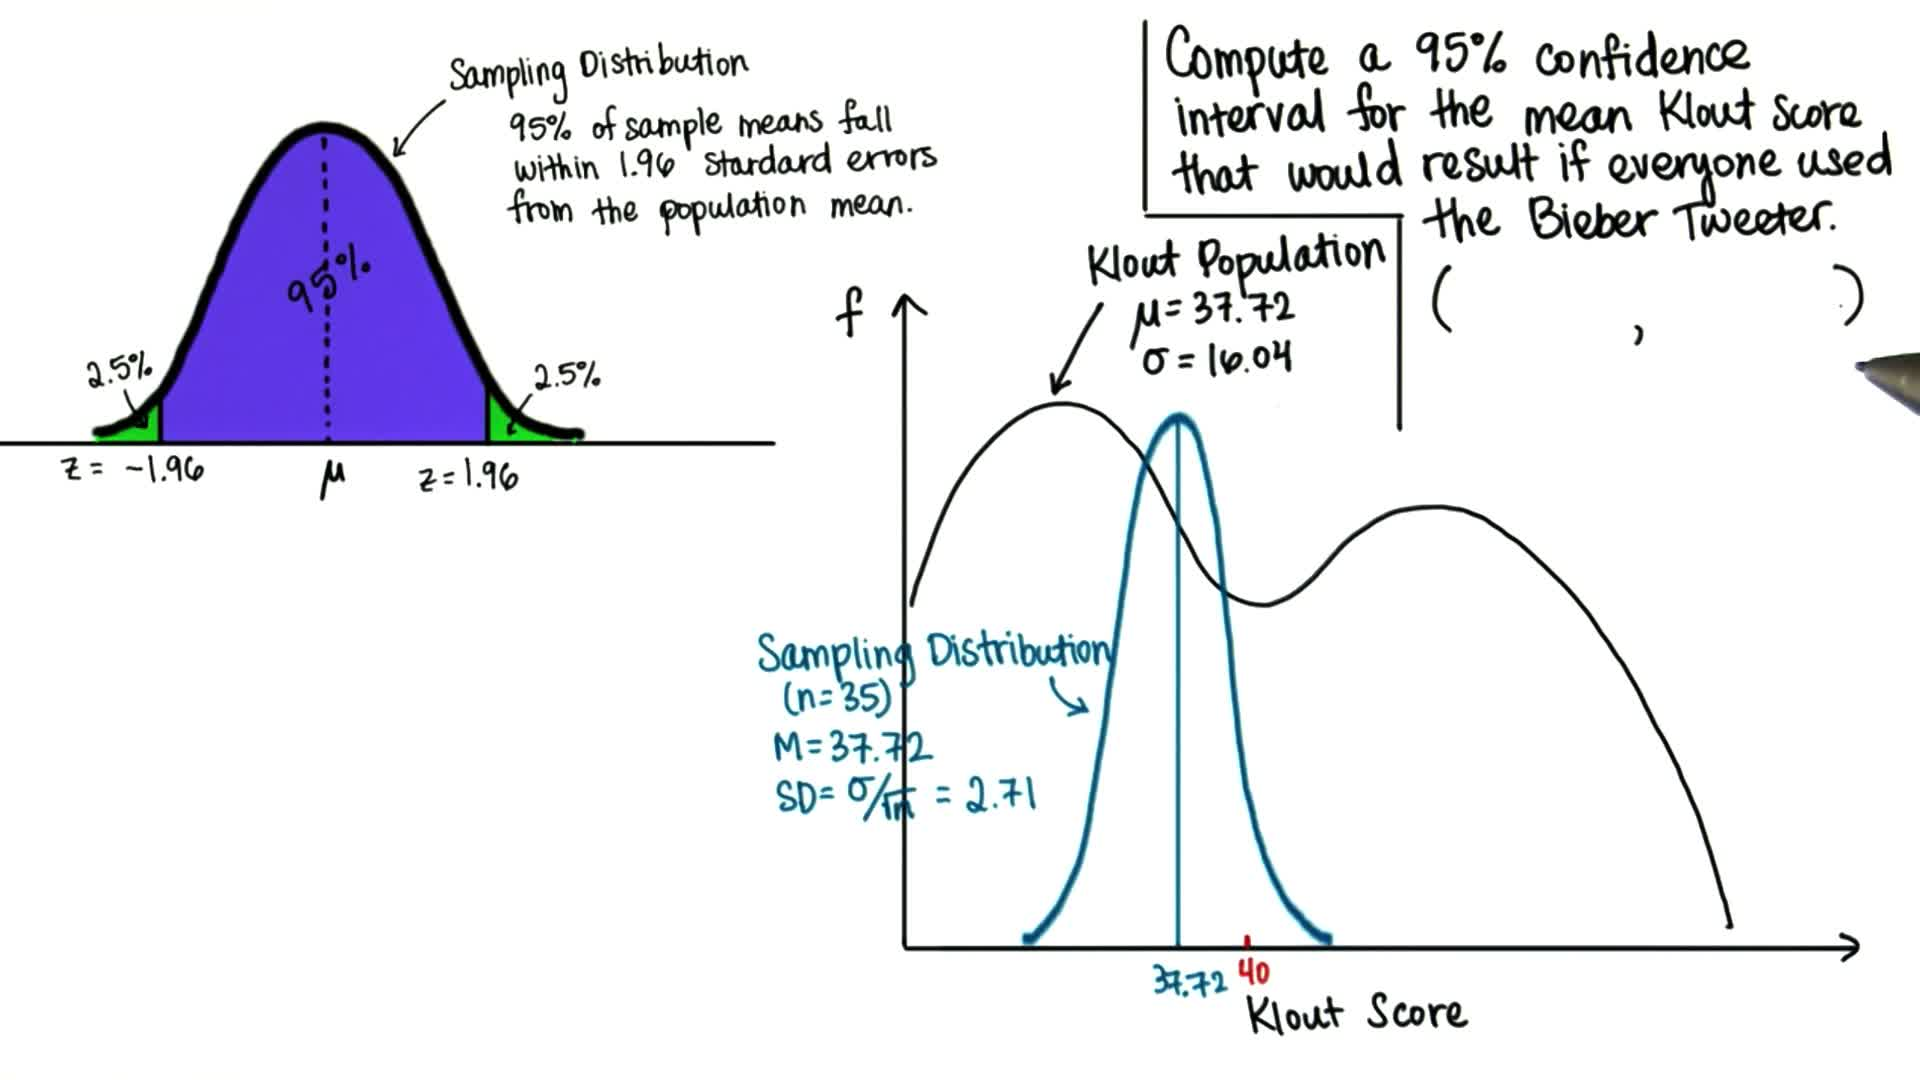 Sampling Distribution
95% of sample means fall
within 1.96 stardard errors
from the population mean.
95%
2.5%
2.5%
z = -1.96
μ
z = 1.96
Compute a 95% confidence
interval for the mean Klout score
that would result if everyone used
the Bieber Tweeter.
( , )
Klout Population
μ = 37.72
σ = 16.04
f
Sampling Distribution
(n=35)
M = 37.72
SD = σ/√n = 2.71
37.72
40
Klout Score